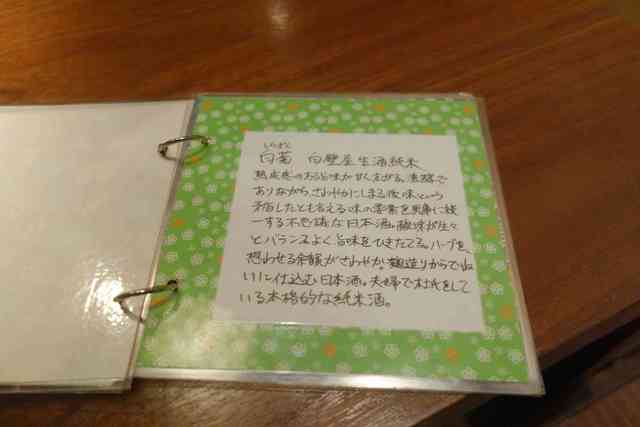 しらぎく
白菊 白壁屋生酒純米
熟成感のある旨味が
ありながら、さわやかにしまる後味という
矛盾したとも言える味の要素を見事に統
一する不思議な日本酒。酸味が生々
とバランスよく旨味をひきたてる。ハーブを
想わせる余韻がさわやか。麹造りからていね
いに仕込む日本酒。夫婦で杜氏をして
いる本格的な純米酒。